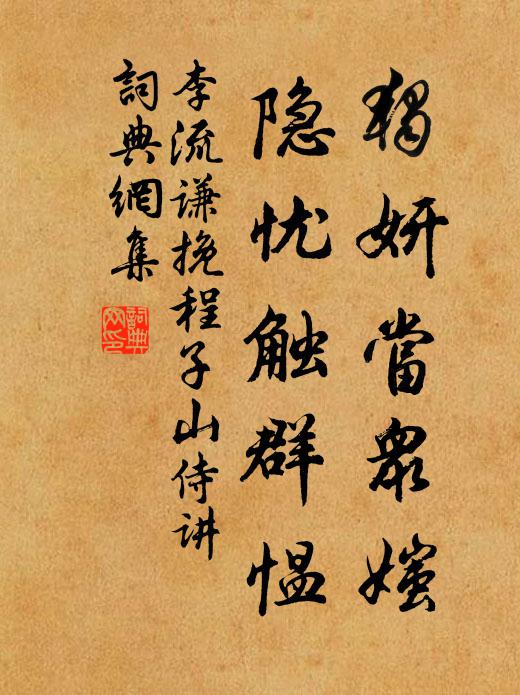 獨妍當眾媸
隐忧触群愠
李流谦挽程子山侍讲
詞典網集
詞典网印